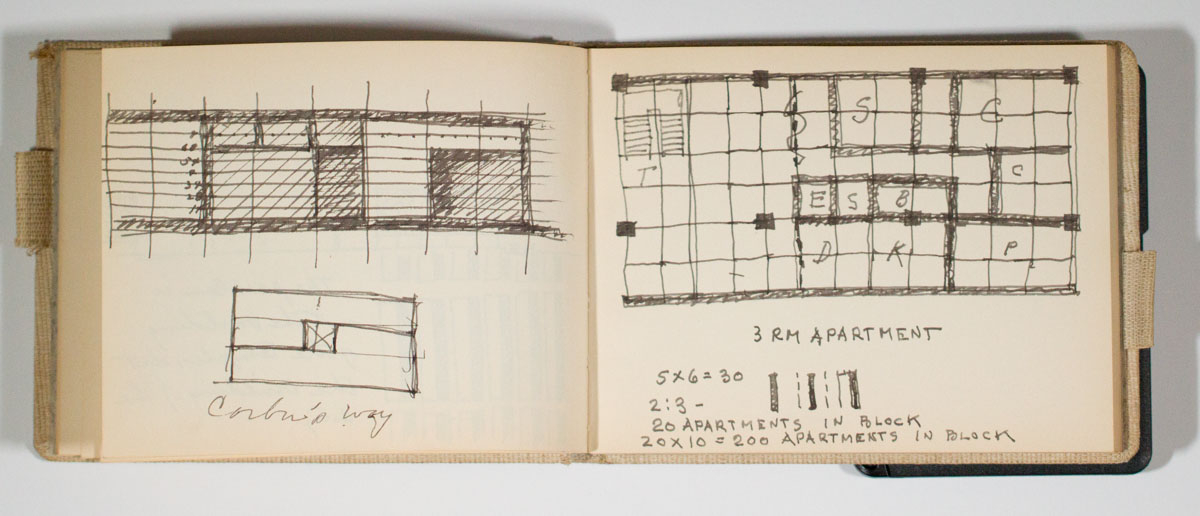 Corbu's way
S
C
T
C
E
S
B
D
K
P
3 RM APARTMENT
5X6=30
2:3-
20 APARTMENTS IN BLOCK
20X10=200 APARTMENTS IN BLOCK